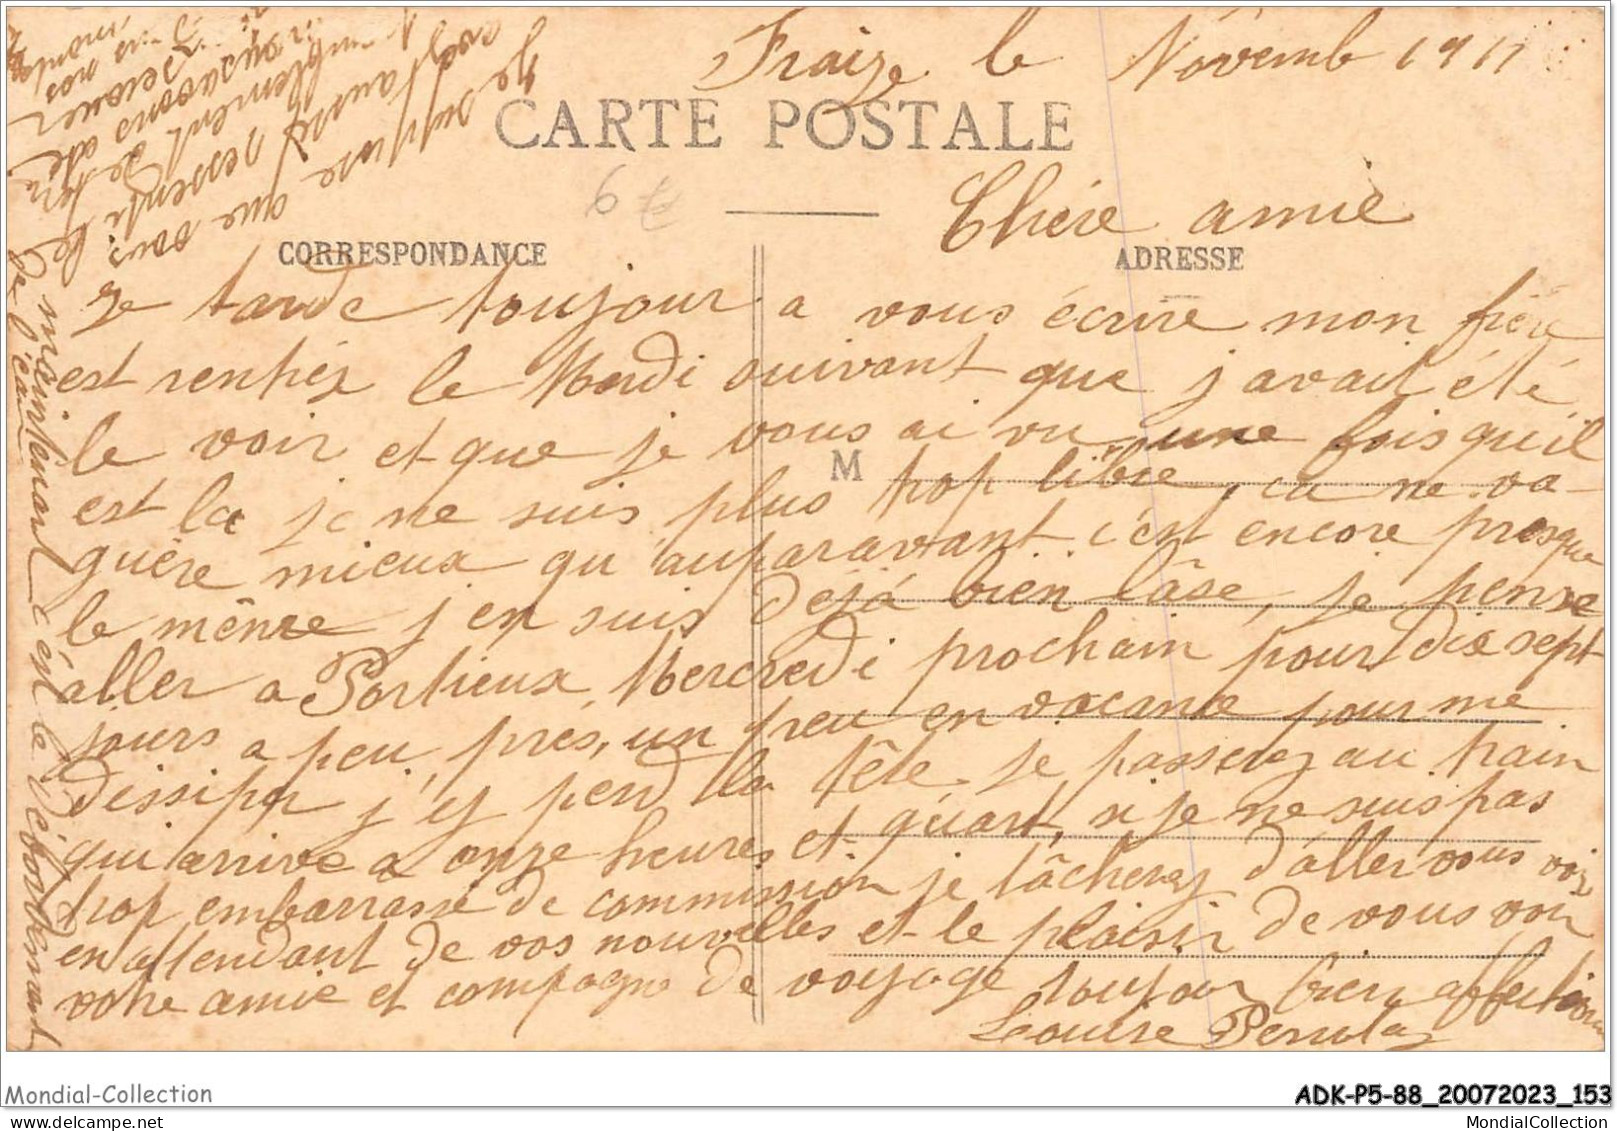 Fraize le Novemb 1911
CARTE POSTALE
67
Chère amie
CORRESPONDANCE
ADRESSE
M
Je tarde toujour a vous écrire mon frère
est rentrez le Mardi suivant que j'avait été
le voir et que je vous ai vu une fois qu'il
est la je ne suis plus trop libre, ca ne va
guère mieux qu'auparavant c'est encore presque
le mênre j'en suis déjà bien lâse, je pense
aller a Portieux Mercredi prochain pour dix sept
jours a peu près, un peu en vacance pour me
dissiper j'y perd la tête. je passerez au train
qui arrive a onze heures et quart, si je ne suis pas
trop embarrassé de commission je tâcherez d'aller vous voir
en attendant de vos nouvelles et le plaisir de vous voir
votre amie et compagne de voyage toujour bien affection
Louise
Je suppose que vous
avez aussi ressenti le
tremblement de ter
nous avons de
nos
maintenant c'est le débordement
de l'eau
Mondial-Collection
ADK-P5-88_20072023_153
MondialCollection